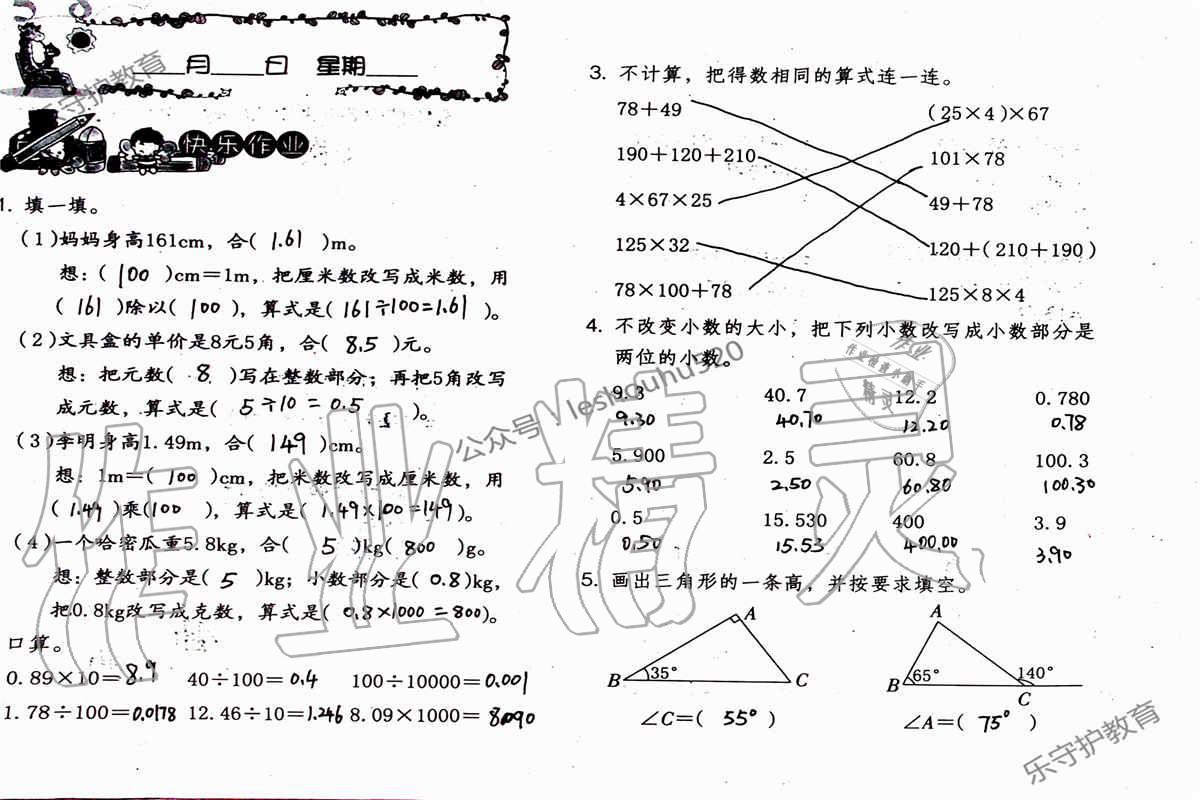 ____月____日 星期____
快乐作业
1. 填一填。
(1)妈妈身高161cm，合( 1.61 )m。
想：( 100 )cm＝1m，把厘米数改写成米数，用
( 161 )除以( 100 )，算式是( 161÷100=1.61 )。
(2)文具盒的单价是8元5角，合( 8.5 )元。
想：把元数( 8 )写在整数部分；再把5角改写
成元数，算式是( 5÷10=0.5 )。
(3)李明身高1.49m，合( 149 )cm。
想：1m＝( 100 )cm，把米数改写成厘米数，用
( 1.49 )乘( 100 )，算式是( 1.49×100=149 )。
(4)一个哈密瓜重5.8kg，合( 5 )kg( 800 )g。
想：整数部分是( 5 )kg；小数部分是( 0.8 )kg，
把0.8kg改写成克数，算式是( 0.8×1000=800 )。
口算。
0.89×10＝8.9 40÷100＝0.4 100÷10000＝0.001
1.78÷100＝0.0178 12.46÷10＝1.246 8.09×1000＝8090
3. 不计算，把得数相同的算式连一连。
78＋49 (25×4)×67
190＋120＋210 101×78
4×67×25 49＋78
125×32 120＋(210＋190)
78×100＋78 125×8×4
4. 不改变小数的大小，把下列小数改写成小数部分是
两位的小数。
9.3 40.7 12.2 0.780
9.30 40.70 12.20 0.78
5.900 2.5 60.8 100.3
5.90 2.50 60.80 100.30
0.5 15.530 400 3.9
0.50 15.53 400.00 3.90
5. 画出三角形的一条高，并按要求填空。
A A
B 35° C B 65° 140° C
∠C＝( 55° ) ∠A＝( 75° )
乐守护教育
公众号：leshouhu520
作业精灵
乐守护教育